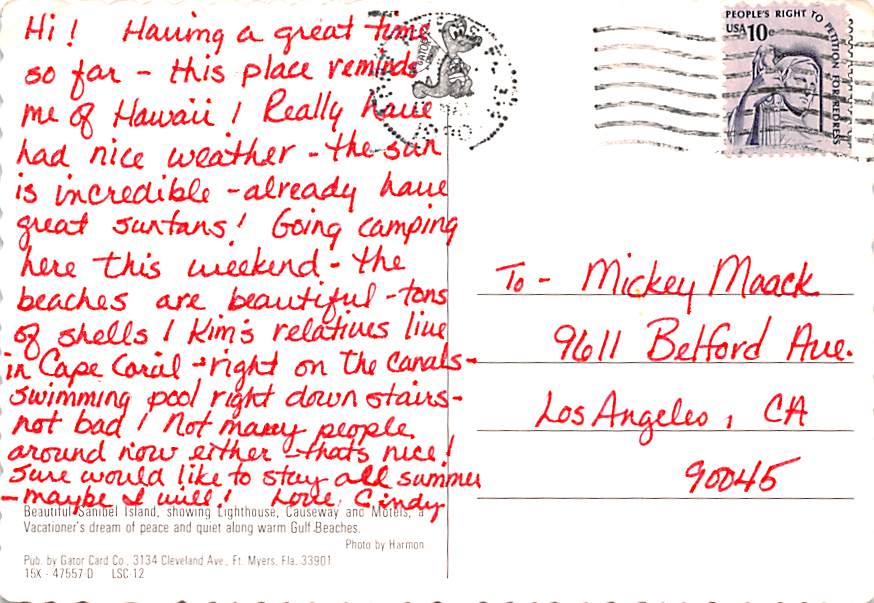 Hi! Having a great time
so far - this place reminds
me of Hawaii! Really have
had nice weather - the sun
is incredible - already have
great suntans! Going camping
here this weekend - the
beaches are beautiful - tons
of shells! Kim's relatives live
in Cape Coral - right on the canals -
swimming pool right down stairs -
not bad! Not many people
around now either - thats nice!
Sure would like to stay all summer
- maybe I will! Love, Cindy
Beautiful Sanibel Island, showing Lighthouse, Causeway and Motels, a
Vacationer's dream of peace and quiet along warm Gulf Beaches.
Photo by Harmon
Pub. by Gator Card Co., 3134 Cleveland Ave., Ft. Myers, Fla. 33901
15X - 47557-D LSC-12
GATOR
PEOPLE'S RIGHT TO PETITION FOR REDRESS
USA 10c
To - Mickey Maack
9611 Belford Ave.
Los Angeles, CA
90045